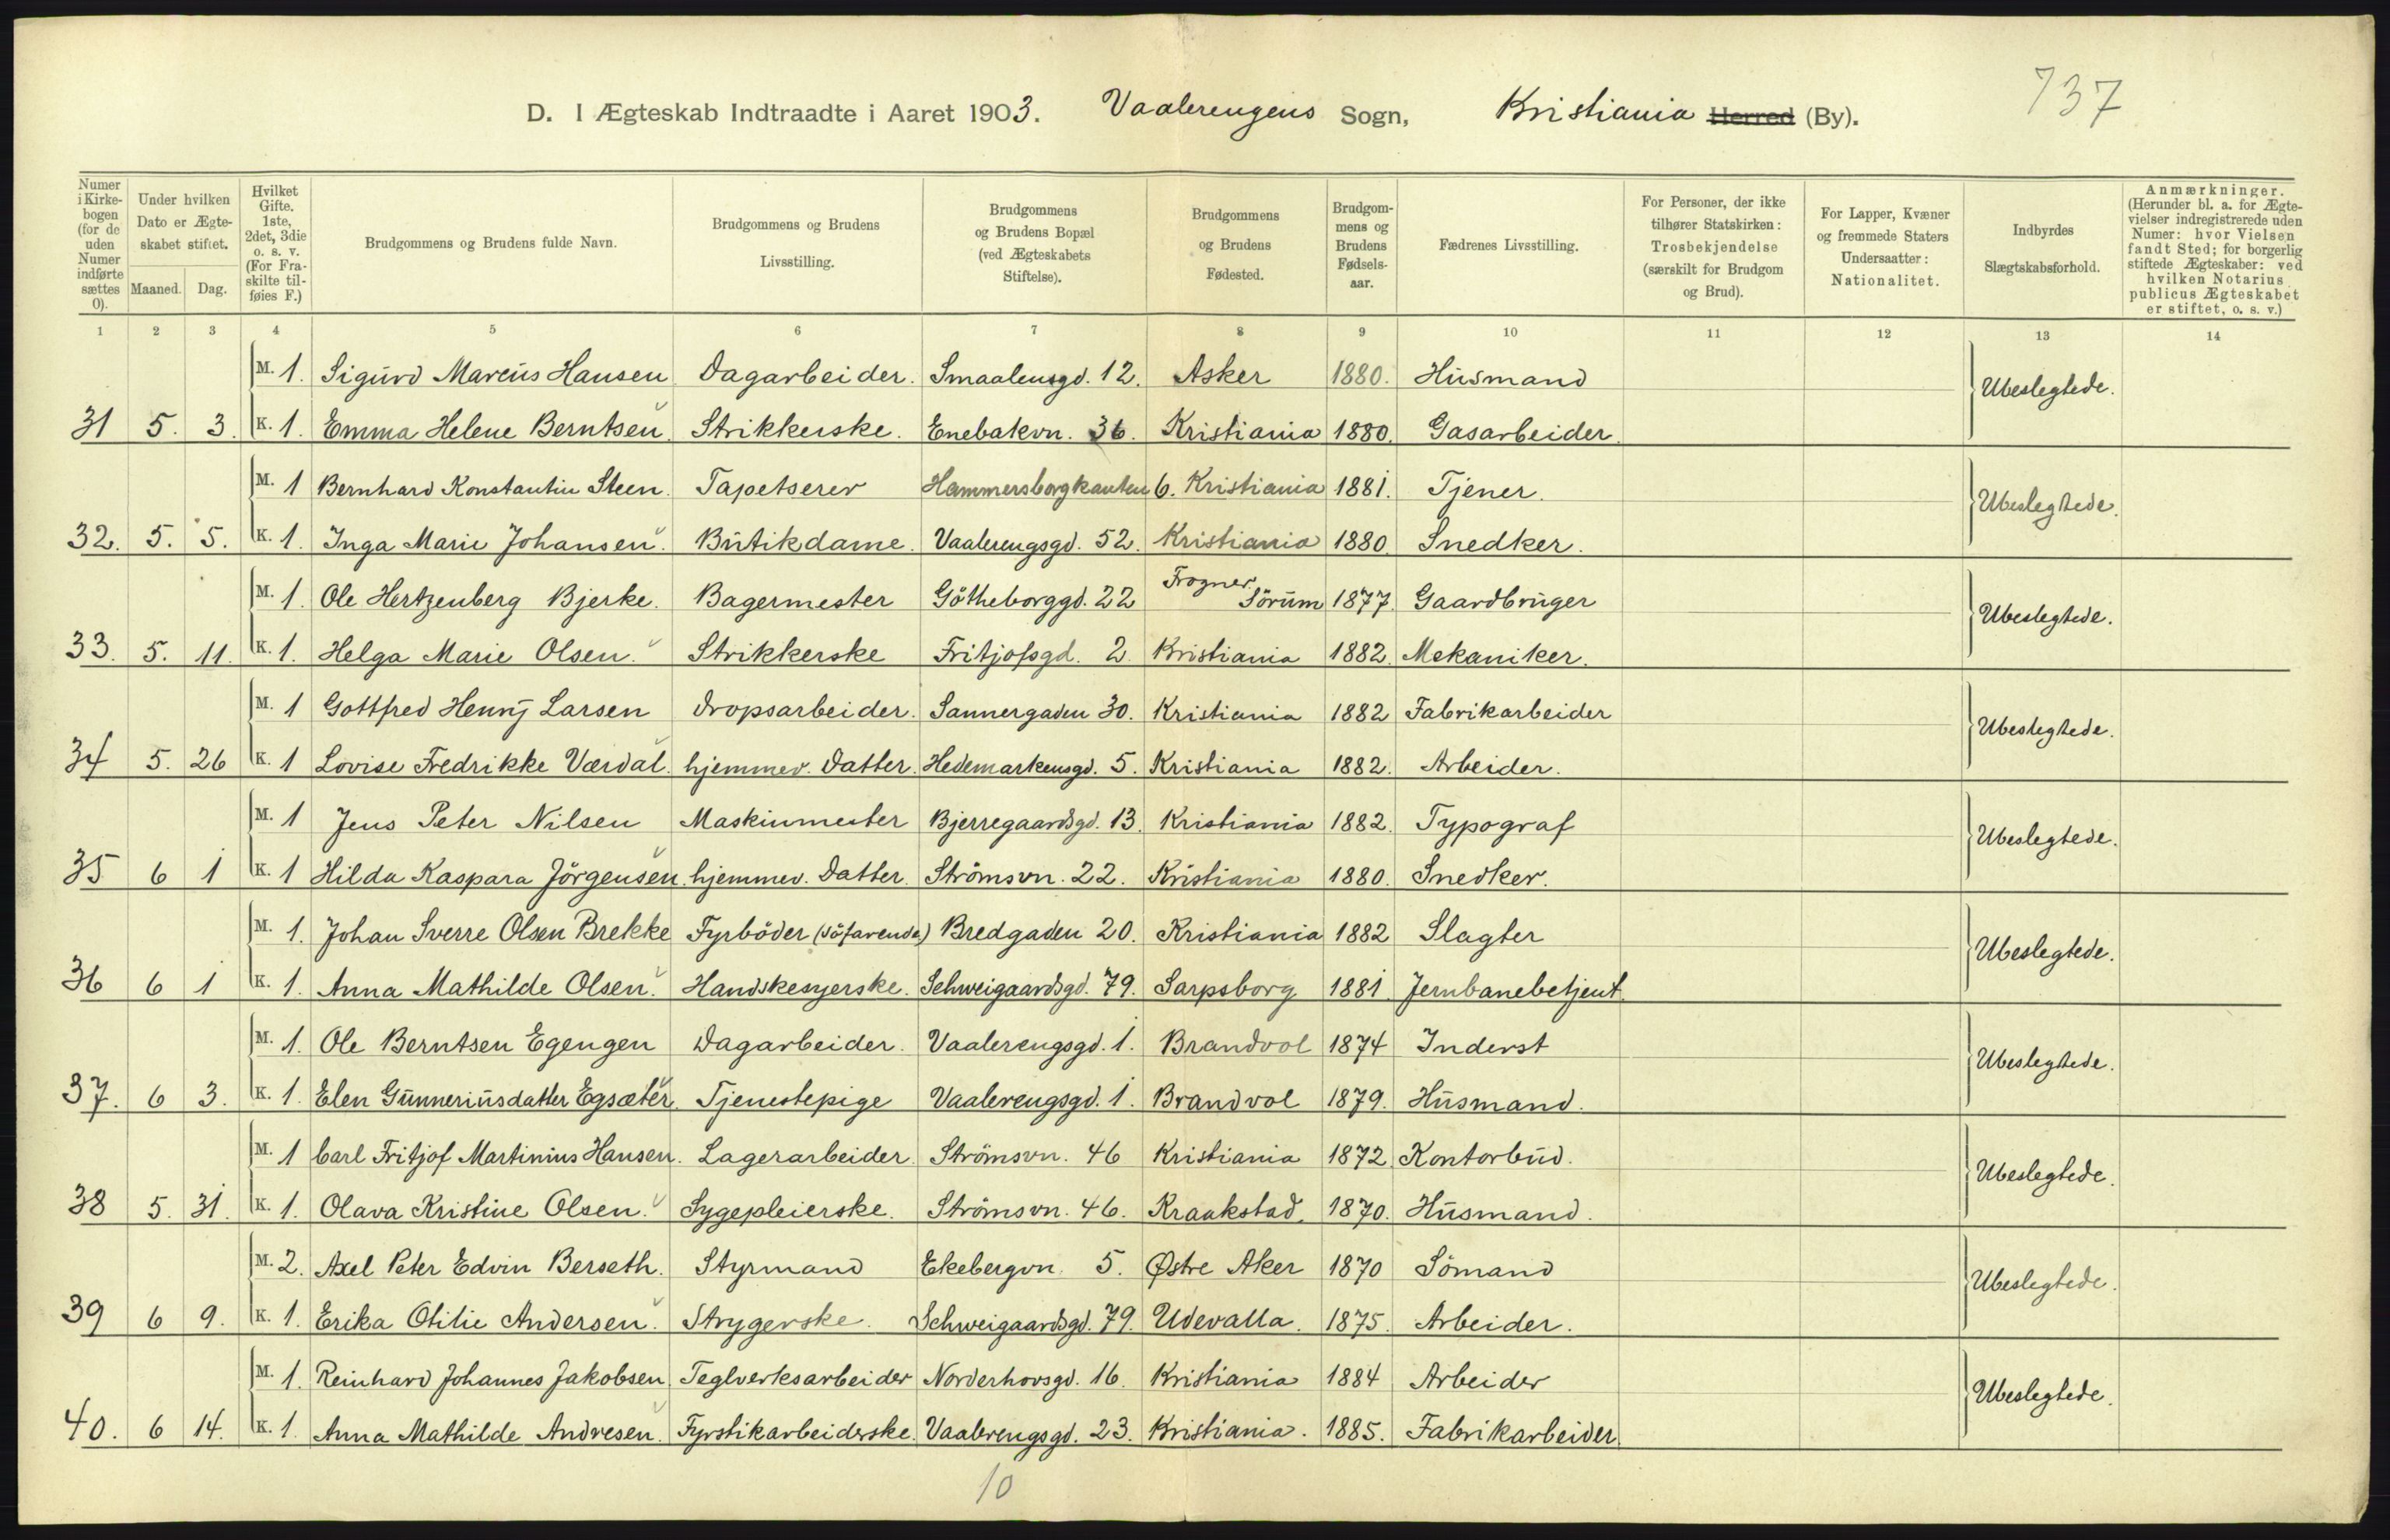 737
D. I Ægteskab Indtraadte i Aaret 1903. Vaalerengens Sogn, Kristiania Herred (By).
Numer i Kirkebogen (for de uden Numer indførte sættes 0).
Under hvilken Dato er Ægteskabet stiftet.
Maaned. Dag.
Hvilket Gifte. 1ste, 2det, 3die o. s. v. (For Fraskilte tilføies F.)
Brudgommens og Brudens fulde Navn.
Brudgommens og Brudens Livsstilling.
Brudgommens og Brudens Bopæl (ved Ægteskabets Stiftelse).
Brudgommens og Brudens Fødested.
Brudgommens og Brudens Fødselsaar.
Fædrenes Livsstilling.
For Personer, der ikke tilhører Statskirken: Trosbekjendelse (særskilt for Brudgom og Brud).
For Lapper, Kvæner og fremmede Staters Undersaatter: Nationalitet.
Indbyrdes Slægtskabsforhold.
Anmærkninger. (Herunder bl. a. for Ægtevielser indregistrerede uden Numer: hvor Vielsen fandt Sted; for borgerlig stiftede Ægteskaber: ved hvilken Notarius publicus Ægteskabet er stiftet, o. s. v.)
1 2 3 4 5 6 7 8 9 10 11 12 13 14
M. 1. Sigurd Marcus Hansen Dagarbeider. Smaalensgd. 12. Asker 1880. Husmand Ubeslegtede.
31 5. 3. K. 1. Emma Helene Berntsen. Strikkerske. Enebakvn. 36. Kristiania 1880. Gasarbeider.
M. 1 Bernhard Konstantin Steen. Tapetserer Hammersborgkanten 6. Kristiania 1881. Tjener. Ubeslegtede.
32. 5. 5. K. 1. Inga Marie Johansen. Butikdame. Vaalerengsgd. 52. Kristiania 1880 Snedker.
M. 1. Ole Hertzenberg Bjerke. Bagermester Götheborggd. 22 Frogner Sörum 1877 Gaardbruger Ubeslegtede.
33. 5. 11. K. 1. Helga Marie Olsen. Strikkerske Fritjofsgd. 2 Kristiania 1882. Mekaniker.
M. 1 Gottfred Henry Larsen Dropsarbeider. Sannergaden 30. Kristiania 1882 Fabrikarbeider Ubeslegtede.
34 5. 26 K. 1 Lovise Fredrikke Værdal. hjemmev. Datter. Hedemarkensgd. 5. Kristiania 1882. Arbeider.
M. 1 Jens Peter Nilsen Maskinmester Bjerregaardsgd. 13. Kristiania 1882. Typograf Ubeslegtede.
35 6 1 K. 1 Hilda Kaspara Jörgensen. hjemmev. Datter. Strömsvn. 22. Kristiania 1880. Snedker.
M. 1. Johan Sverre Olsen Brekke Fyrböder (söfarende) Bredgaden 20. Kristiania 1882 Slagter Ubeslegtede.
36 6 1 K. 1. Anna Mathilde Olsen. Handskesyerske. Schweigaardsgd. 79. Sarpsborg 1881 Jernbanebetjent.
M. 1. Ole Berntsen Egengen Dagarbeider. Vaalerengsgd. 1. Brandvol 1874 Inderst Ubeslegtede.
37. 6 3. K. 1. Elen Gunneriusdatter Egsæter. Tjenestepige Vaalerengsgd. 1. Brandvol 1879. Husmand.
M. 1 Carl Fritjof Martinius Hansen. Lagerarbeider. Strömsvn. 46 Kristiania 1872. Kontorbud. Ubeslegtede.
38 5. 31. K. 1. Olava Kristine Olsen. Sygepleierske. Strömsvn. 46. Kraakstad. 1870. Husmand.
M. 2. Axel Peter Edvin Berseth. Styrmand Ekebergvn. 5. Østre Aker 1870 Sömand Ubeslegtede.
39 6 9. K. 1. Erika Otilie Andersen. Strygerske. Schweigaardsgd. 79. Udevalla. 1875. Arbeider.
M. 1. Reinhard Johannes Jakobsen Teglverksarbeider Norderhovsgd. 16. Kristiania 1884 Arbeider Ubeslegtede.
40. 6 14. K. 1. Anna Mathilde Andresen. Fyrstikarbeiderske. Vaalerengsgd. 23. Kristiania. 1885. Fabrikarbeider.
10